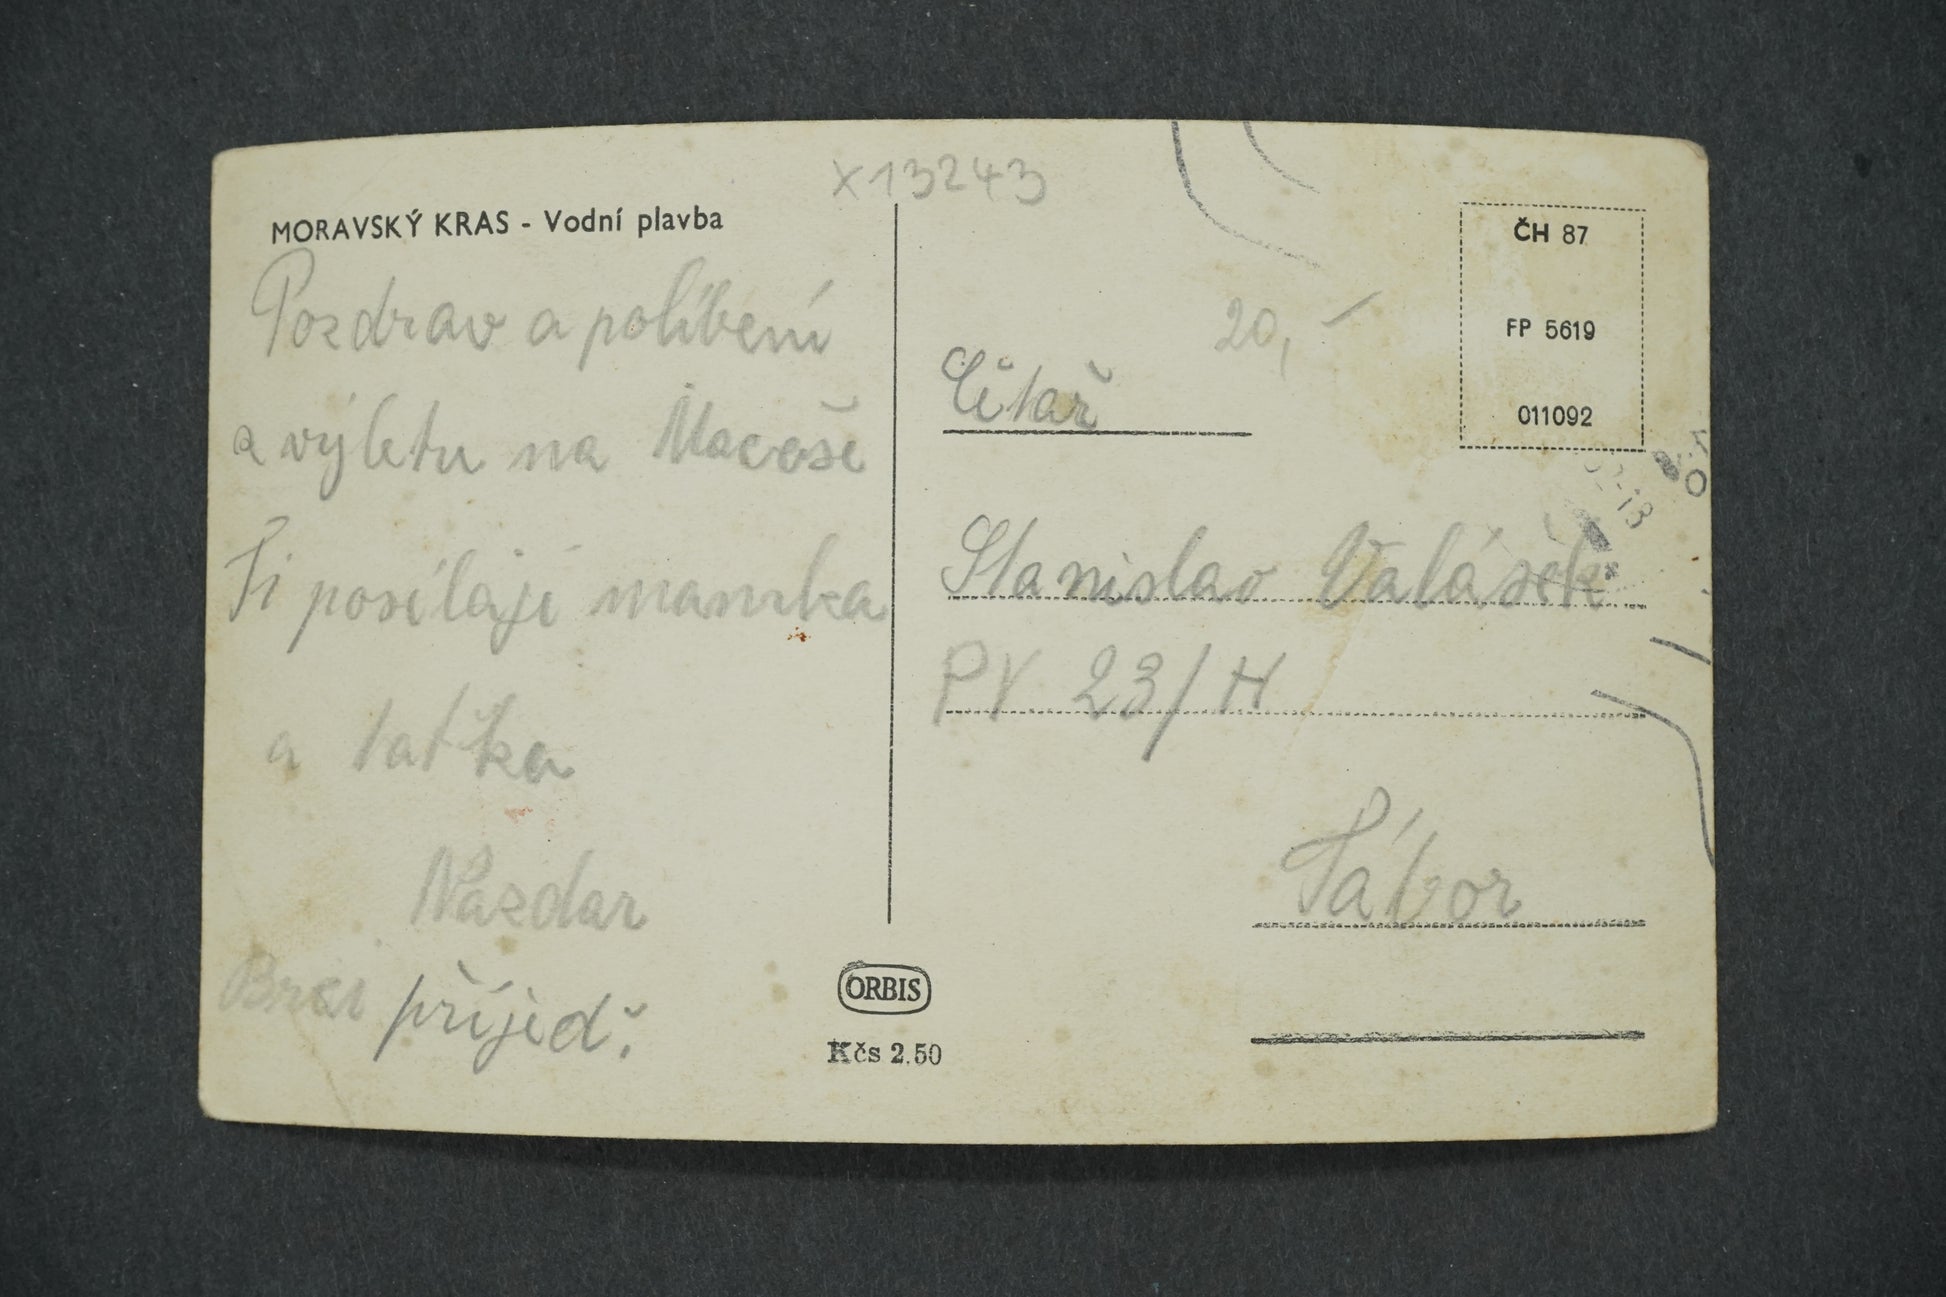 X13243
MORAVSKÝ KRAS - Vodní plavba
Pozdrav a políbení
z výletu na Macoše
Ti posílají mamka
a taťka
Nazdar
Brzi přijeď.
20,-
ČH 87
FP 5619
011092
Stanislav Valášek
PV 23/H
Tábor
ORBIS
Kčs 2.50
-18